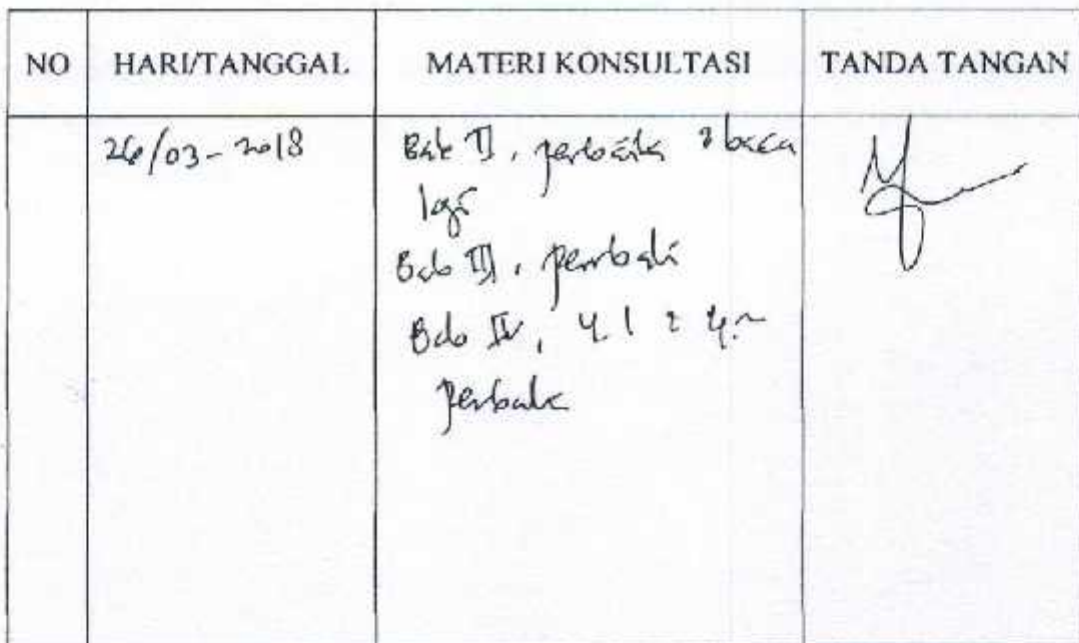 NO HARI/TANGGAL MATERI KONSULTASI TANDA TANGAN
26/03-2018 Bab II, perbaiki & baca
lagi
Bab III, perbaiki
Bab IV, 4.1 & 4.2
perbaiki